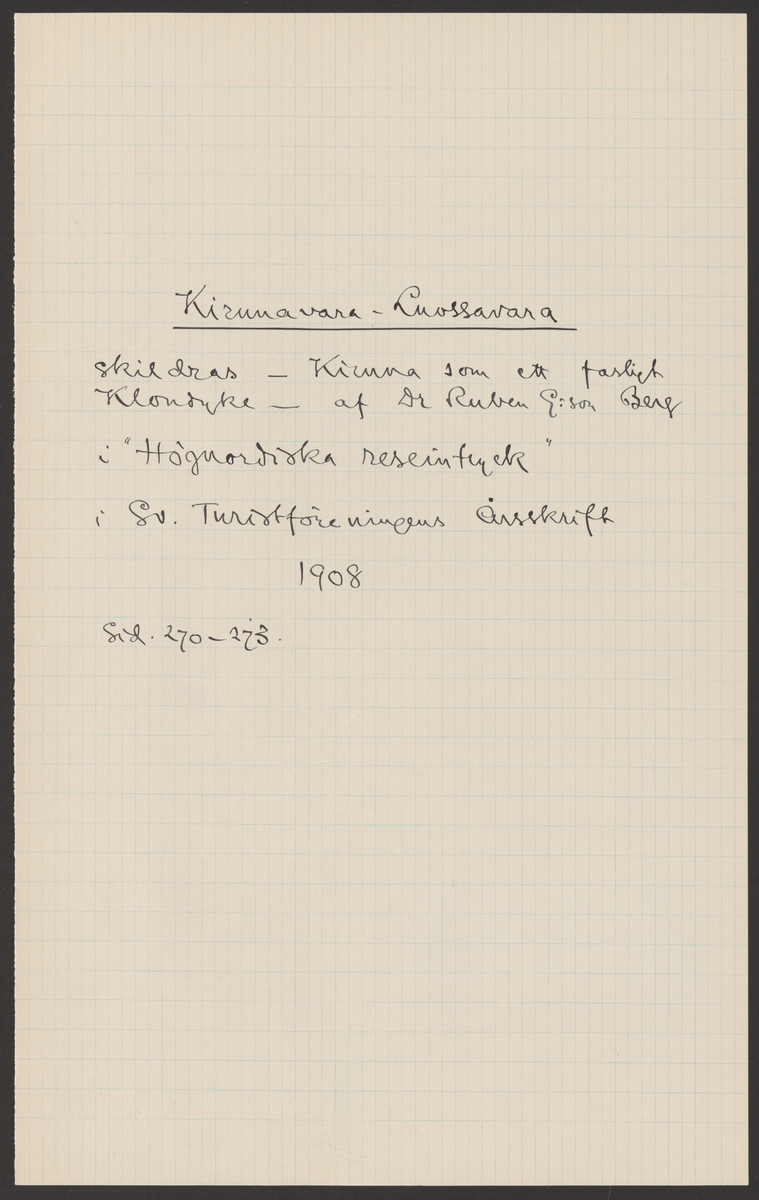 Kirunavara - Luossavara
skildras – Kiruna som ett farligt
Klondyke – af Dr Ruben G:son Berg
i "Högnordiska reseintryck"
i Sv. Turistföreningens Årsskrift
1908
Sid. 270–273.